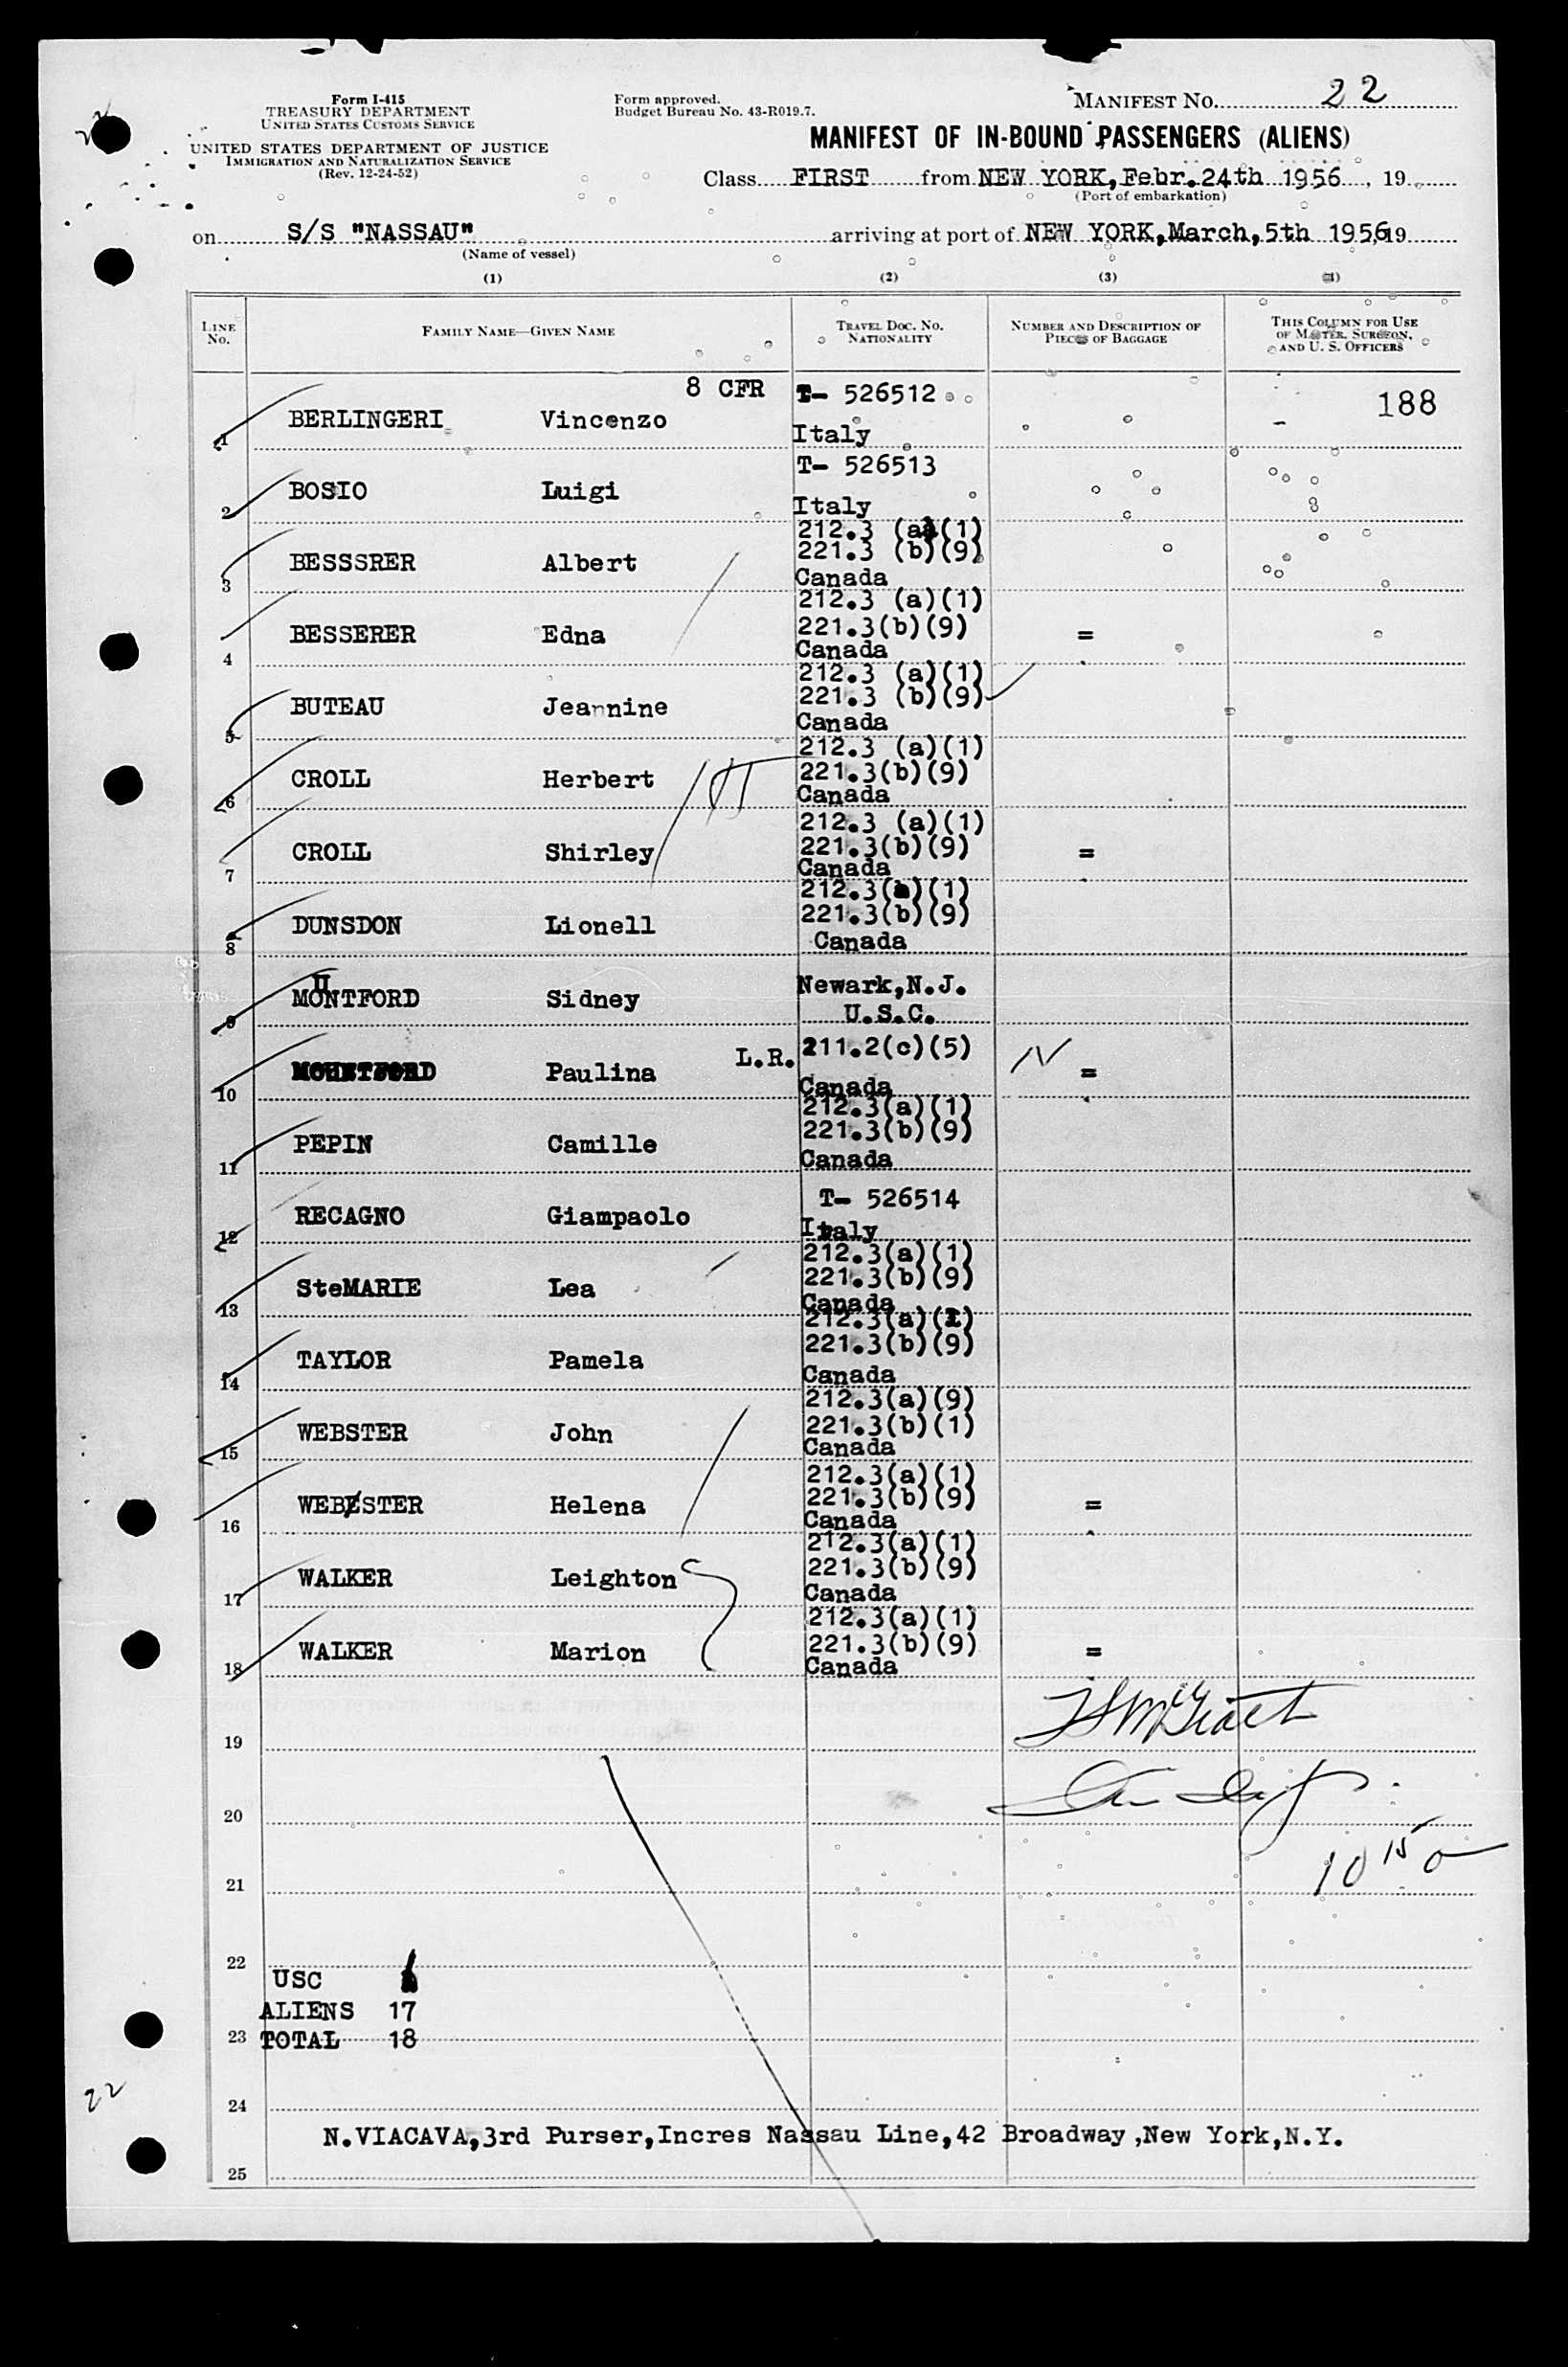 Form I-415
TREASURY DEPARTMENT
UNITED STATES CUSTOMS SERVICE
UNITED STATES DEPARTMENT OF JUSTICE
IMMIGRATION AND NATURALIZATION SERVICE
(Rev. 12-24-52)
Form approved.
Budget Bureau No. 43-R019.7.
MANIFEST NO. 22
MANIFEST OF IN-BOUND PASSENGERS (ALIENS)
Class FIRST from NEW YORK, Febr. 24th 1956, 19
(Port of embarkation)
on S/S "NASSAU" arriving at port of NEW YORK, March, 5th 1956, 19
(Name of vessel)
(1) (2) (3) (4)
LINE No.
FAMILY NAME—GIVEN NAME
TRAVEL DOC. NO. NATIONALITY
NUMBER AND DESCRIPTION OF PIECES OF BAGGAGE
THIS COLUMN FOR USE OF MASTER, SURGEON, AND U. S. OFFICERS
8 CFR T- 526512 188
1 BERLINGERI Vincenzo
Italy
T- 526513
2 BOSIO Luigi
Italy
212.3 (a)(1)
221.3 (b)(9)
3 BESSSRER Albert
Canada
212.3 (a)(1)
221.3(b)(9)
4 BESSERER Edna =
Canada
212.3 (a)(1)
221.3 (b)(9)
5 BUTEAU Jeannine
Canada
212.3 (a)(1)
221.3(b)(9)
6 CROLL Herbert
Canada
212.3 (a)(1)
221.3(b)(9)
7 CROLL Shirley =
Canada
212.3(a)(1)
221.3(b)(9)
8 DUNSDON Lionell
Canada
Newark,N.J.
9 MOUNTFORD Sidney
U.S.C.
L.R. 211.2(c)(5)
10 MOUNTFORD Paulina =
Canada
212.3(a)(1)
221.3(b)(9)
11 PEPIN Camille
Canada
T- 526514
12 RECAGNO Giampaolo
Italy
212.3(a)(1)
221.3(b)(9)
13 SteMARIE Lea
Canada
212.3(a)(1)
221.3(b)(9)
14 TAYLOR Pamela
Canada
212.3(a)(9)
221.3(b)(1)
15 WEBSTER John
Canada
212.3(a)(1)
221.3(b)(9)
16 WEBSTER Helena =
Canada
212.3(a)(1)
221.3(b)(9)
17 WALKER Leighton
Canada
212.3(a)(1)
221.3(b)(9)
18 WALKER Marion =
Canada
19
20
10 15 a
21
22
USC
ALIENS 17
23 TOTAL 18
22
24
N.VIACAVA,3rd Purser,Incres Nassau Line,42 Broadway,New York,N.Y.
25